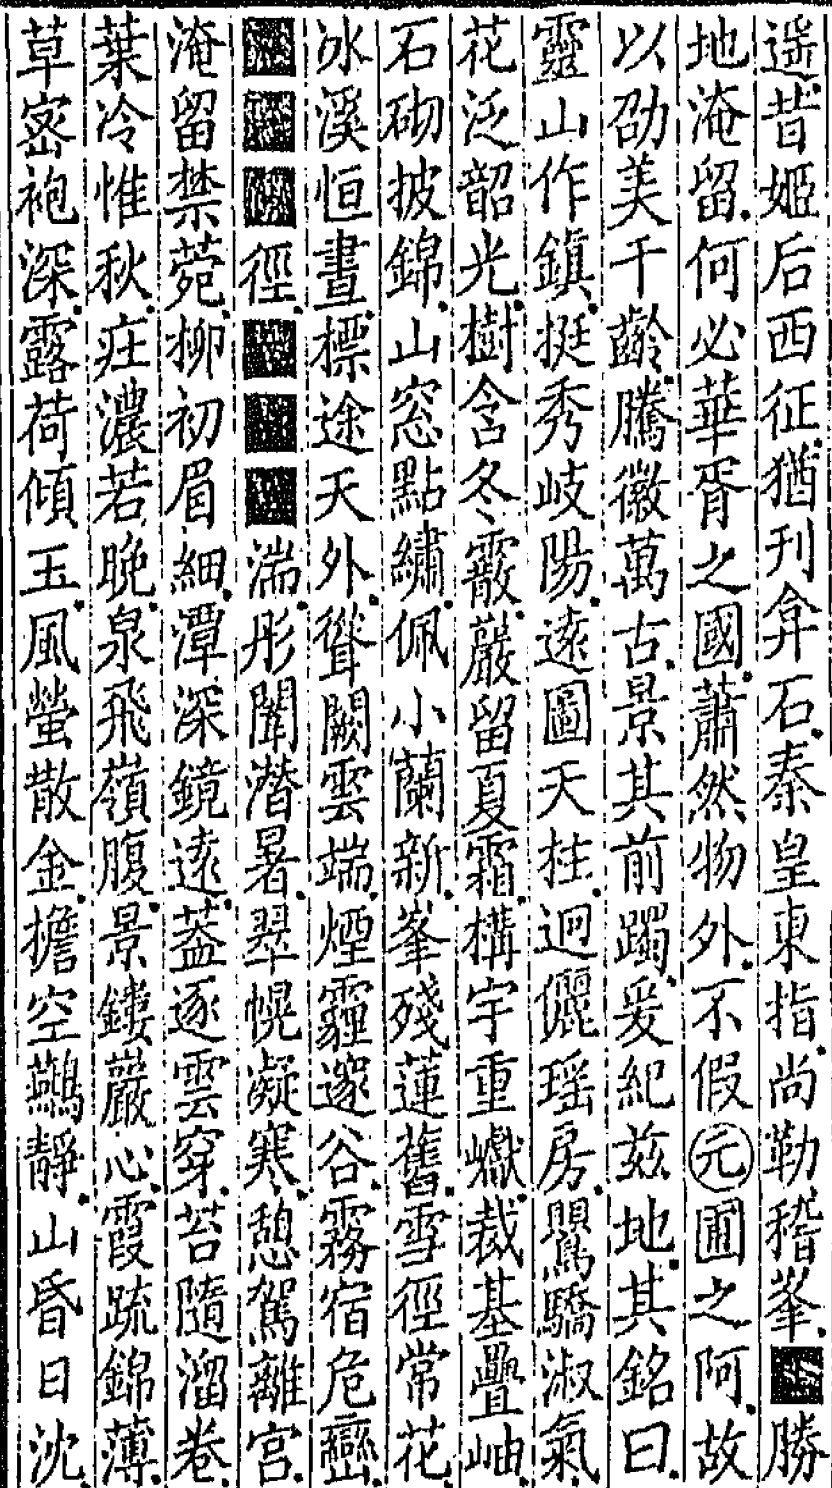 遥昔姬后西征猶刊弇石秦皇東指尚勒稽峯■勝
地淹留何必華胥之國蕭然物外不假元圃之阿故
以劭美千齡騰徽萬古景其前躅爰紀茲地其銘曰
靈山作鎮挺秀岐陽遠圖天柱迥儷瑶房鸎驕淑氣
花泛韶光樹含冬霰巖留夏霜構宇重巘裁基疊岫
石砌披錦山窓點繡佩小蘭新峯殘蓮舊雪徑常花
冰溪恒晝標途天外聳闕雲端煙霾邃谷霧宿危巒
■■■徑■■■湍彤聞潛暑翠幌凝寒憩駕離宮
淹留禁菀柳初眉細潭深鏡遠蓋逐雲穿苔隨溜卷
葉冷惟秋庄濃若晚泉飛嶺腹景鏤巖心霞疏錦薄
草密袍深露荷傾玉風螢散金檐空鷰靜山昏日沈